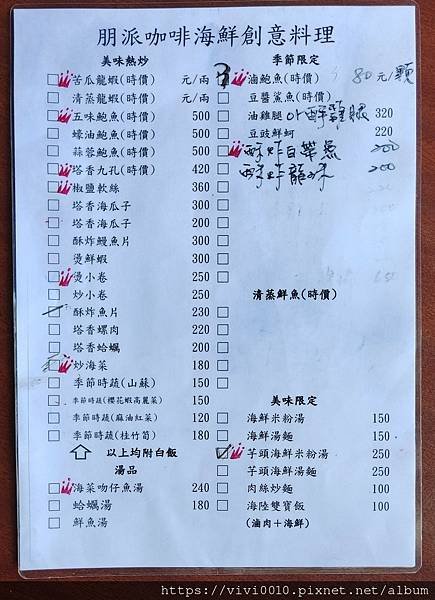 朋派咖啡海鮮創意料理
美味熱炒
苦瓜龍蝦(時價) 元/兩
清蒸龍蝦(時價) 元/兩
五味鮑魚(時價) 500
蠔油鮑魚(時價) 500
蒜蓉鮑魚(時價) 500
塔香九孔(時價) 420
椒鹽軟絲 360
塔香海瓜子 300
塔香海瓜子 200
酥炸鰻魚片 300
燙鮮蝦 300
燙小卷 250
炒小卷 250
酥炸魚片 230
塔香螺肉 220
塔香蛤蠣 200
炒海菜 180
季節時蔬(山蘇) 150
季節時蔬(櫻花蝦高麗菜) 150
季節時蔬(麻油紅菜) 120
季節時蔬(桂竹筍) 180
以上均附白飯
湯品
海菜吻仔魚湯 240
蛤蠣湯 180
鮮魚湯
季節限定
滷鮑魚(時價) 80元/顆
豆醬鯊魚(時價)
油雞腿 or 醉雞腿 320
豆豉鮮蚵 220
酥炸白帶魚 200
酥炸龍珠 200
清蒸鮮魚(時價)
美味限定
海鮮米粉湯 150
海鮮湯麵 150
芋頭海鮮米粉湯 250
芋頭海鮮湯麵 250
肉絲炒麵 100
海陸雙寶飯 100
(滷肉+海鮮)
https://vivi0010.pixnet.net/album